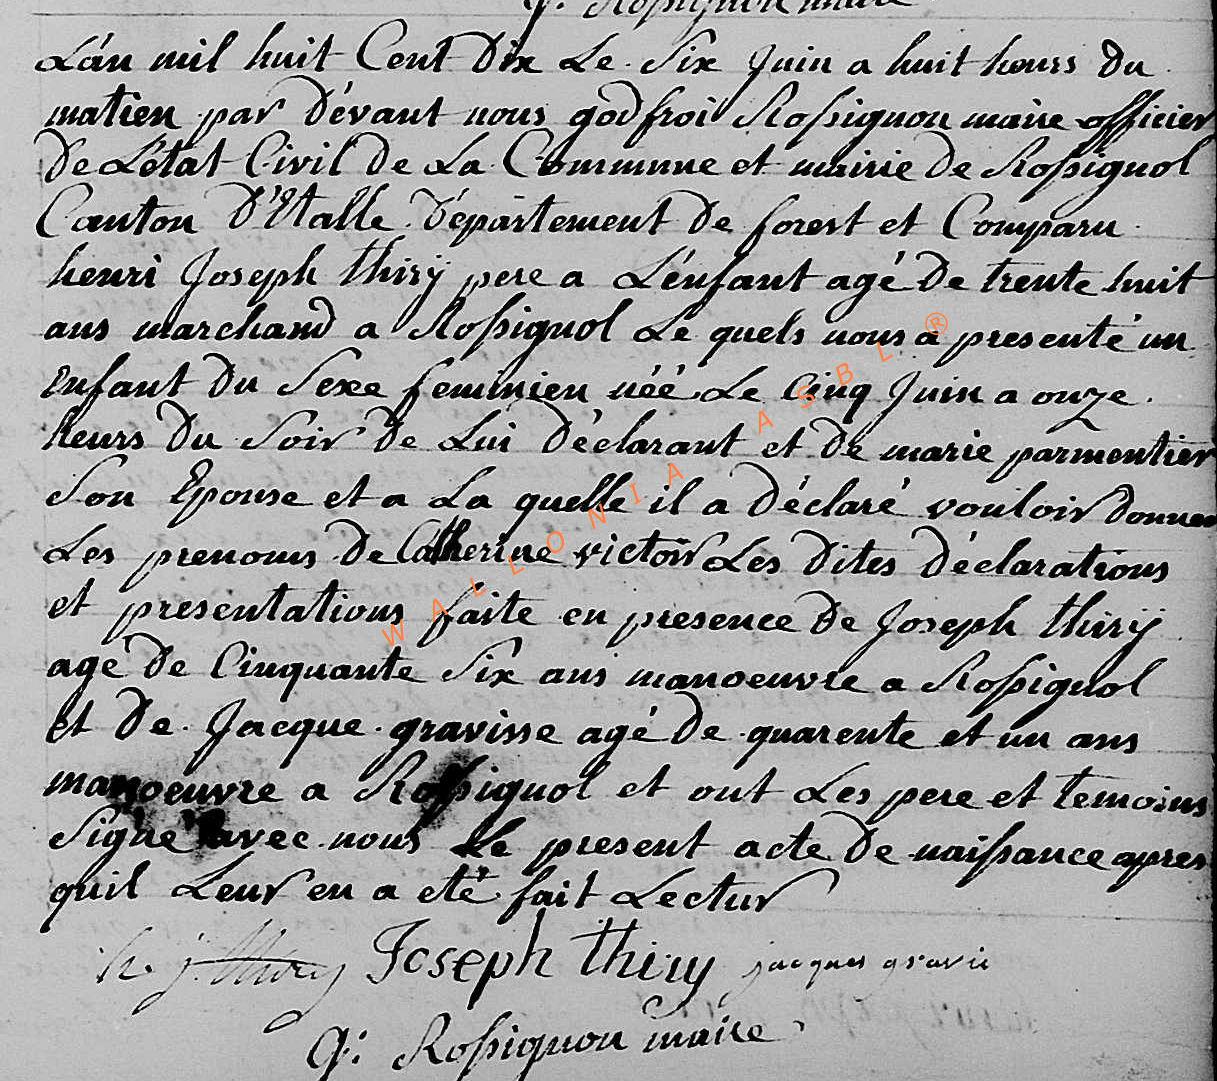 g. Rossignon maire
L'án mil huit Cent Dix Le Six Juin a huit heurs Du
matien par Dévant nous godfroi Rossignon maire officier
De L'etat Civil de La Commune et mairie de Rossignol
Canton D'Etalle Département De forest et Comparu
henri Joseph thirÿ pere a L'énfant agé De trente huit
ans marchand a Rossignol Le quels nous a presenté un
Enfant Du Sexe feminien néé Le Cinq Juin a onze
heurs Du Soir De Lui Déclarant et De marie parmentier
Son Epouse et a La quelle il a Déclaré vouloir Donner
Les prenoms De Catherine victoir Les Dites Déclarations
et presentations faite en presence De Joseph thirÿ
age De Cinquante Six ans manoeuvre a Rossignol
Et De Jacque gravisse agé De quarente et un ans
manoeuvre a Rossignol et ont Les pere et temoins
Signé avec nous Le present acte De naissance apres
quil Leur en a eté fait Lectur
h. j. thiry Joseph thiry jacques gravis
g: Rossignon maire
WALLONIA ASBL ®